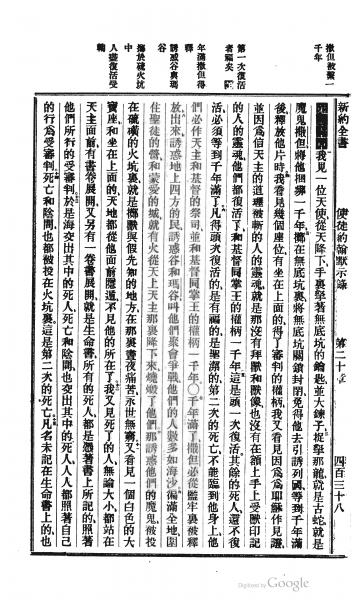 新約全書
使徒約翰默示錄
第二十章
四百三十八
撒但被繫一千年
第一次復活者福矣
千年滿撒但得釋
誘惑谷與瑪
擲於硫火坑中
人盡復活受鞫
我見一位天使從天降下手裏拏著無底坑的鑰匙並大鍊子捉拏那龍就是古蛇就是
魔鬼撒但將他捆綁一千年擲在無底坑裏將無底坑關鎖封閉免得他去引誘列國等到千年滿
後釋放他片時我看見幾個座位有坐在上面的得了審判的權柄我又看見因爲爲耶穌作見證
並因爲信天主的道理被斬的人的靈魂就是那沒有拜獸和獸像也沒有在額上手上受獸印記
的人的靈魂他們都復活了和基督同掌王的權柄一千年這是頭一次復活其餘的死人還不復
活必須等到千年滿了凡得頭次復活的是有福的是聖潔的第二次的死亡不能臨到他身上他
們必作天主和基督的祭司並和基督同掌王的權柄一千年〇千年滿了撒但必從監牢裏被釋
放出來誘惑地上四方的民誘惑谷和瑪谷叫他們聚會爭戰他們的人數多如海沙徧滿全地圍
住聖徒的營和蒙愛的城就有火從天上天主那裏降下來燒燬了他們那誘惑他們的魔鬼被投
在硫磺的火坑裏就是擲獸與假先知的地方在那裏晝夜痛苦永世無窮又看見一個白色的大
寶座和坐在上面的天地都從他面前隱遁不見他的所在了我又見死了的人無論大小都站在
天主面前有書卷展開又另有一卷書展開就是生命書所有的人都是憑著書上所記的照著
他們所行的受審判於是海交出其中的死人死亡和陰間也交出其中的死人人人都照著自己
的行爲受審判死亡和陰間也都被投在火坑裏這是第二次的死亡凡名未記在生命書上的也
Digitized by Google